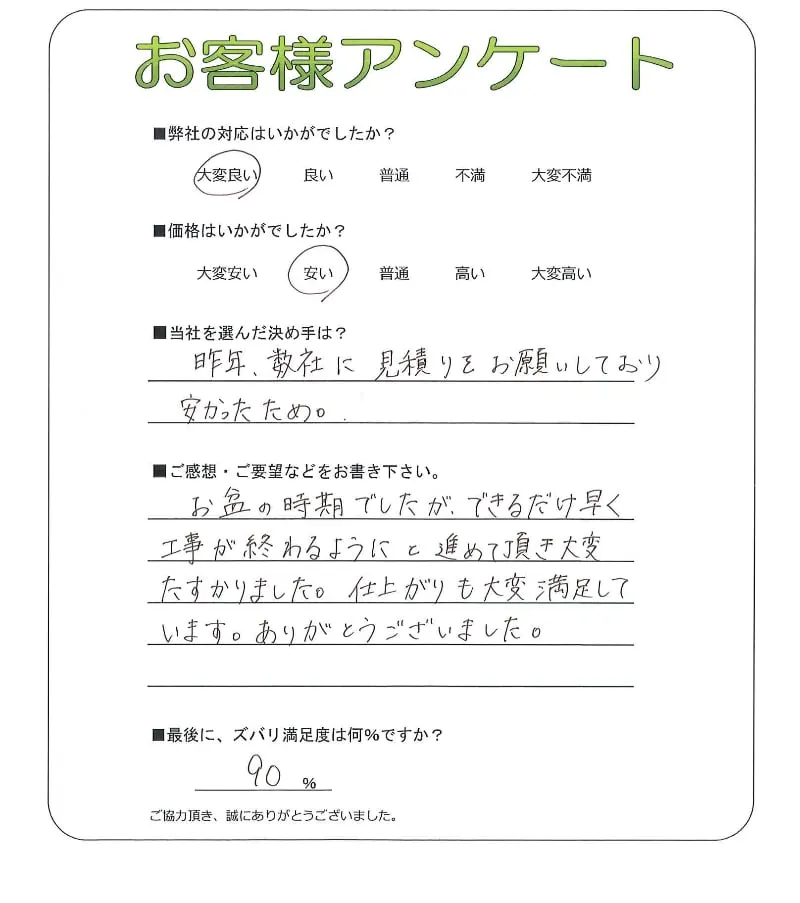 お客様アンケート
■弊社の対応はいかがでしたか？
大変良い 良い 普通 不満 大変不満
■価格はいかがでしたか？
大変安い 安い 普通 高い 大変高い
■当社を選んだ決め手は？
昨年、数社に見積りをお願いしており
安かったため。
■ご感想・ご要望などをお書き下さい。
お盆の時期でしたが、できるだけ早く
工事が終わるようにと進めて頂き大変
たすかりました。仕上がりも大変満足して
います。ありがとうございました。
■最後に、ズバリ満足度は何%ですか？
90 %
ご協力頂き、誠にありがとうございました。